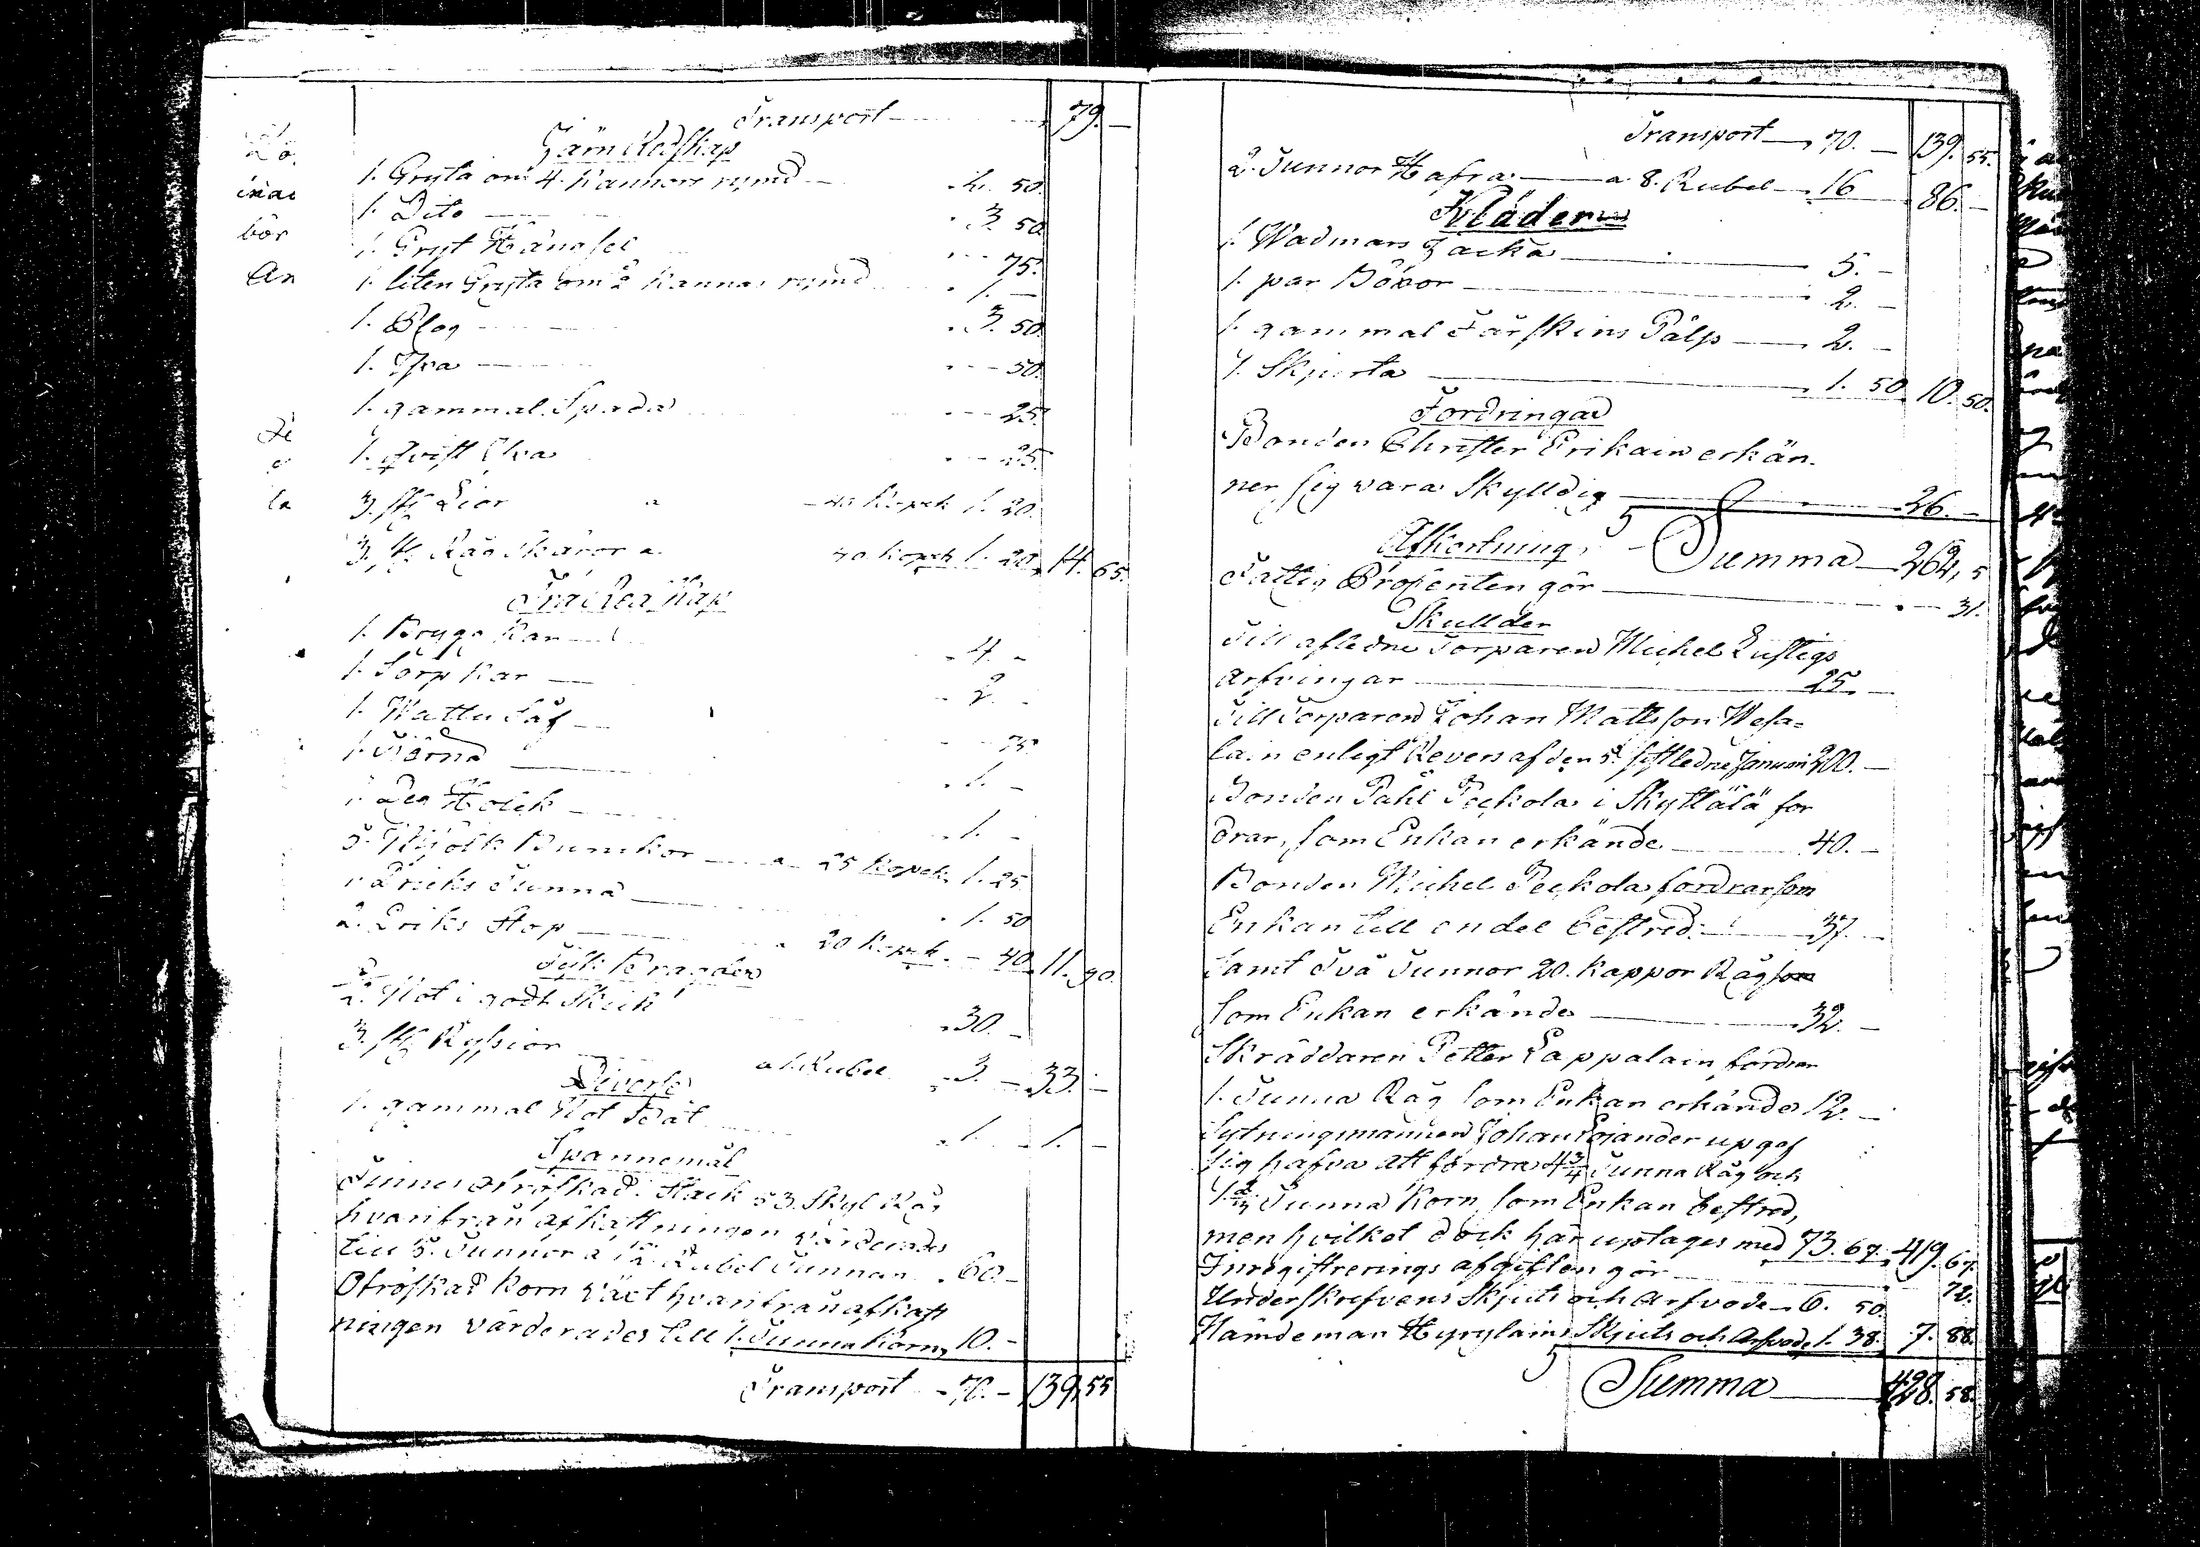 Transport 79. —
Järn Redskap
1. Gryta om 4. Kannors rymd 2. 50.
1. Dito 3. 50
1. Gryt Hängsel 75.
1. liten Gryta om 2 Kannas rymd 1. —
1. Plog 3. 50
1. Yxa 50.
1. gammal Spada 25.
1. Qvist Yxa 25.
3. st. Liar a 40 kopek 1. 20.
3. st. Råg Skäror a 40 kopek 1. 20. 14. 65.
Trä Redskap
1. Brygg Kar 4. —
1. Sörp Kar 2. —
1. Wattu Såf
1. Tjärna 75
1. Deg 1. —
5. Mjölk Bunkor a 25 kopek 1. 25.
1. Dricks Tunna 1. 50
2. Driks Stop a 20 kopek 40. 11. 90.
Fisk Bragder
2. Not i godt Skick 30. —
3. st. Ryssior a 1. Rubel 3. — 33. —
Diverse
1. gammal Not Båt 1. — 1. —
Spannemål
Finnes otröskad i Stack 53. Skyl Råg
hvarifrån afkastningen värderades
till 5. Tunnor a 12 Rubel Tunnan 60. —
Otröskad Korn växt hvarifrån afkast
ningen värderades till 1. Tunna Korn, 10. —
Transport 70. — 139. 55
Transport 70. — 139. 55.
2. Tunnor Hafra a 8. Rubel 16 86. —
Kläder
1. Wadmars Jacka 5. —
1. par Böxor 2. —
1. gammal Fårskins Päls 2. —
1. Skjorta 1. 50. 10. 50.
Fordringar
Bonden Christer Erikain erkän.
ner sig vara Skylldig 26. —
Afkortning Summa 262, 5
Fattig Procenten gör 31.
Skullder
Till afledne Torparen Michel Lustigs
arfvingar 25. —
Till Torparen Johan Mattsson Wesa=
lain enligt Revers af den 5. sistledne Januari 200. —
Bonden Pahl Peckola i Skyttälä for
drar, som Enkan erkände 40. —
Bonden Michel Peckola fordrar som
Enkan till en del bestred 37. —
Samt Två Tunnor 20. Kappor Råg som
som Enkan erkände 32. —
Skräddaren Petter Lappalain fordrar
1. Tunna Råg som Enkan erkände 12. —
Sytningsmannen Johan upgaf
sig hafva att fordra 4 3/4 Tunna Råg och
Tunna Korn, som Enkan bestred,
men hvilket dock här uptages med 73. 67. 419. 67.
Inregistrerings afgiften gör 72.
Underskrefvens Skjuts och Arfvode 6. 50.
Nämdeman Hyrylains Skjuts och Arfvode 1. 38. 7. 88.
Summa 428. 58.